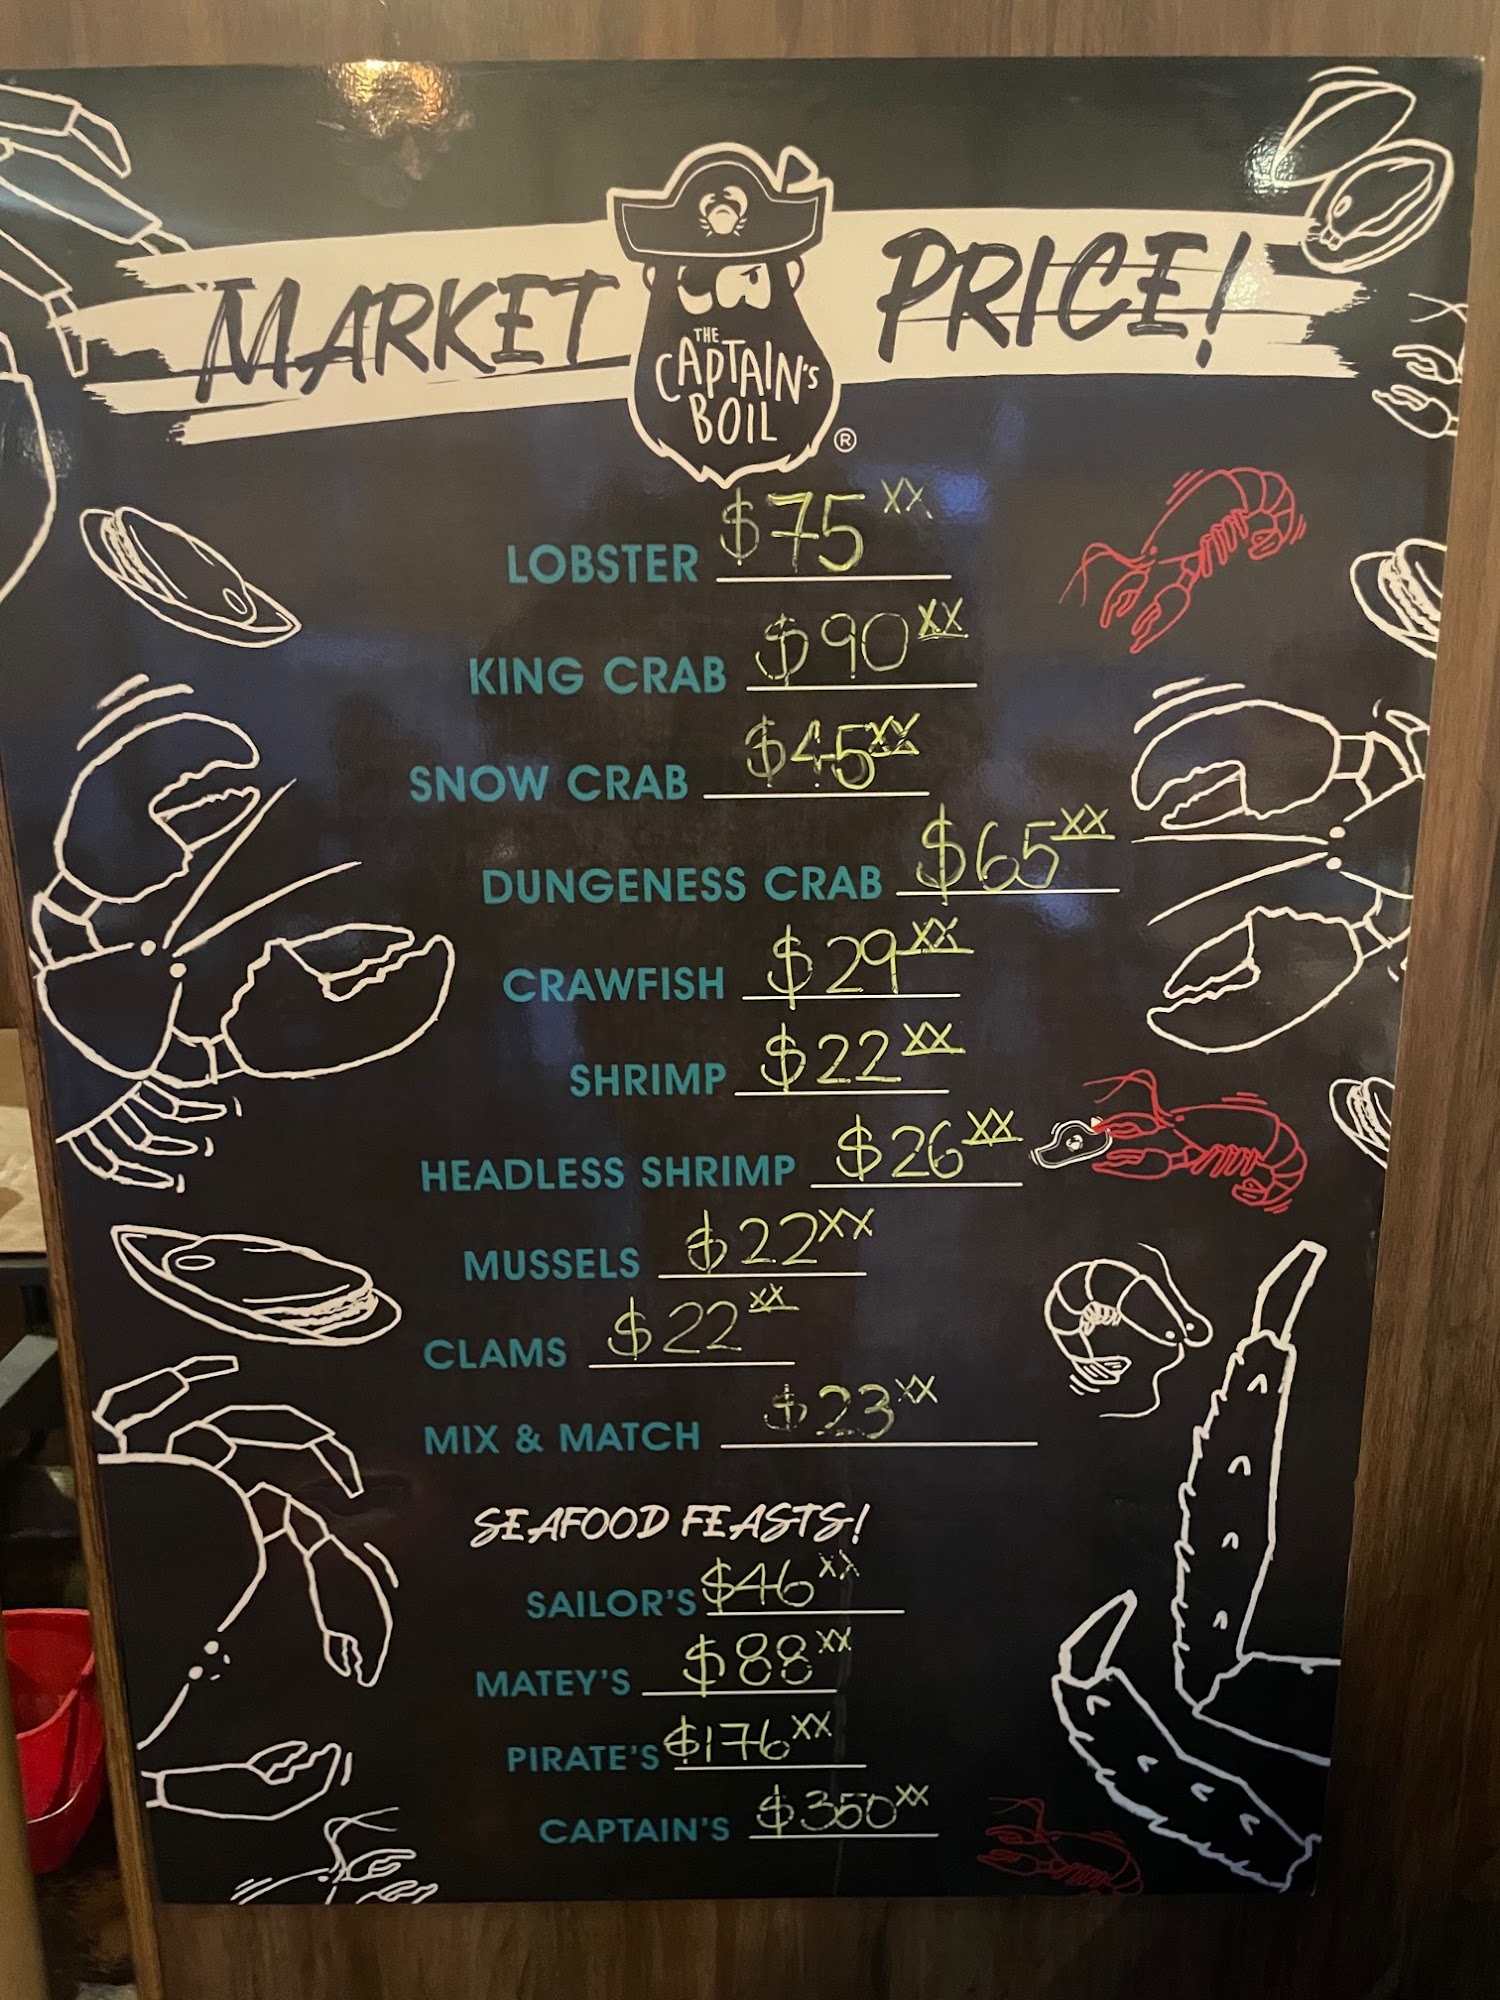 MARKET PRICE!
THE
CAPTAIN'S
BOIL
®
LOBSTER $75 XX
KING CRAB $90 XX
SNOW CRAB $45 XX
DUNGENESS CRAB $65 XX
CRAWFISH $29 XX
SHRIMP $22 XX
HEADLESS SHRIMP $26 XX
MUSSELS $22 XX
CLAMS $22 XX
MIX & MATCH $23 XX
SEAFOOD FEASTS!
SAILOR'S $46 XX
MATEY'S $88 XX
PIRATE'S $176 XX
CAPTAIN'S $350 XX